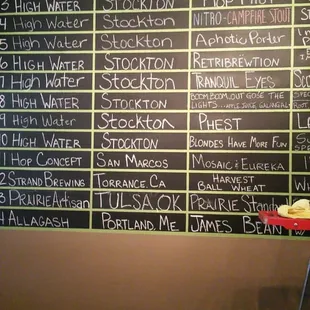 3 HIGH WATER STOCKTON
4 High Water Stockton NITRO-CAMPFIRE STOUT
5 HIGH WATER Stockton Aphotic Porter
6 HIGH WATER STOCKTON RETRIBREWTION
7 High Water STOCKTON TRANQUIL EYES
8 HIGH WATER STOCKTON BOOM BOOM, OUT GOSE THE LIGHTS
9 HIGH WATER Stockton PHEST
10 HIGH WATER STOCKTON BLONDES HAVE MORE FUN
1 HOP CONCEPT SAN MARCOS MOSAIC & EUREKA
2 STRAND BREWING TORRANCE, CA HARVEST BALL WHEAT
3 PRAIRIE ARTISAN TULSA, OK PRAIRIE
4 ALLAGASH PORTLAND, ME JAMES BEAN